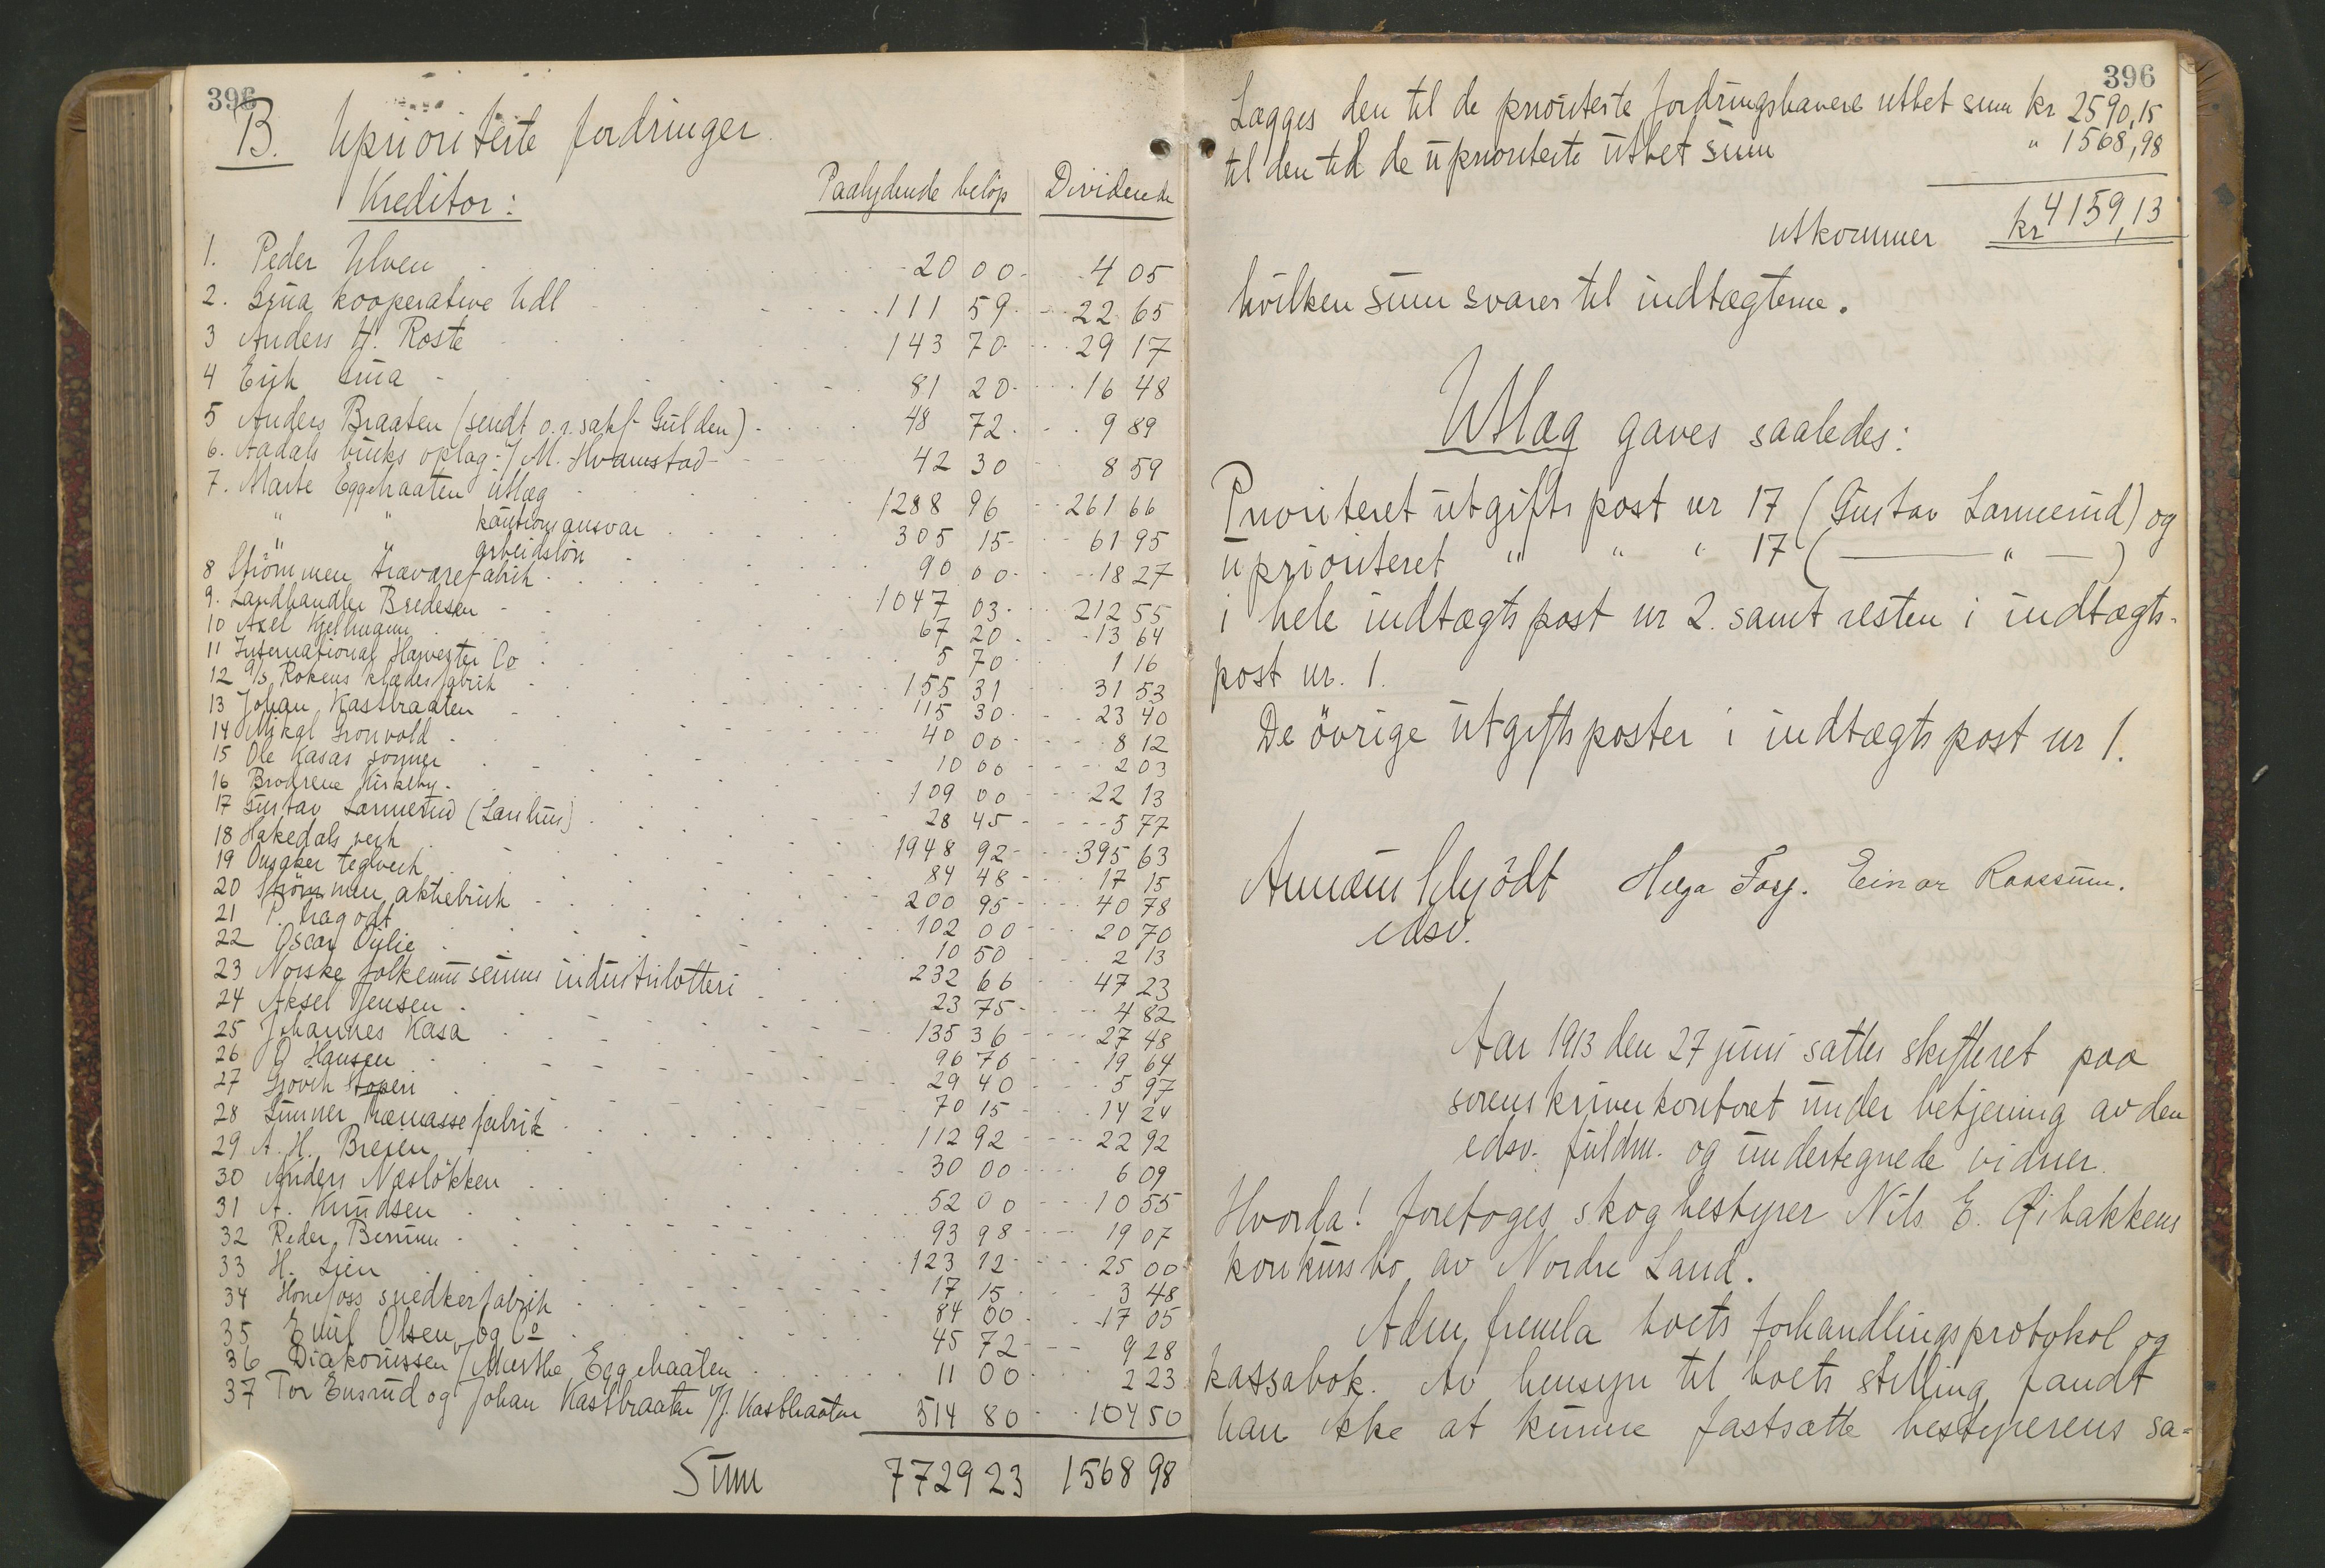 396
B. Uprioriterte fordringer.
Kreditor: Paalydende beløp Dividende
1. Peder Ulven 20 00 4 05
2. Lunna kooperative hdl 111 59 22 65
3 Anders H. Roste 143 70 29 17
4 Erik Lunna 81 20 16 48
5 Anders Braaten (sendt o.r.sakf. Gulden) 48 72 9 89
6. Aadals bruks oplag v/ M. Hvamstad 42 30 8 59
7. Marte Eggebraaten utlæg 1288 96 261 66
" " kautionsansvar 305 15 61 95
" " arbeidsløn 90 00 18 27
8 Strömmen trævarefabrik 1047 03 212 55
9. Landhandler Bredesen 67 20 13 64
10 Axel Kjelmann 5 70 1 16
11 International Harvester Co 155 31 31 53
12 A/S Rokens klædesfabrik 115 30 23 40
13 Johan Kastbraaten 40 00 8 12
14 Mikal Gronvold 10 00 2 03
15 Ole Kasas sonner 109 00 22 13
16 Brodrene Kirkeby 28 45 5 77
17 Gustav Larmerud (Lanhus) 1948 92 395 63
18 Hakedals verk 84 48 17 15
19 Onsaker teglverk 200 95 40 78
20 Strömmen aktiebruk 102 00 20 70
21 P. Hagodt 10 50 2 13
22 Oscar Oilie 232 66 47 23
23 Norske folkemuseums industrilotteri 23 75 4 82
24 Aksel Jensen 135 36 27 48
25 Johannes Kasa 96 76 19 64
26 O Hansen 29 40 5 97
27 Gjovik toperi 70 15 14 24
28 Lunner træmassefabrik 112 92 22 92
29 A. H. Breien 30 00 6 09
30 Anders Næsløkken 52 00 10 55
31 A. Knudsen 93 98 19 07
32 Reder Benum 123 12 25 00
33 H. Lien 17 15 3 48
34 Honefoss snedkerfabrik 84 00 17 05
35 Emil Olsen og Co 45 72 9 28
36 Diakonissen / Marthe Eggebraaten 11 00 2 23
37 Tor Ensrud og Johan Kastbraaten v/J. Kastbraaten 514 80 104 50
Sum 7729 23 1568 98
396
Lægges den til de prioriterte fordringshavere utbet sum kr 2590,15
til den til de uprioriterte utbet sum " 1568,98
utkommer kr 4159,13
hvilken sum svarer til indtægterne.
Utlæg gaves saaledes:
Prioriteret utgifts post nr 17 (Gustav Larmerud) og
uprioriteret " " " 17 ( — " — )
i hele indtægts post nr 2. samt resten i indtægts-
post nr. 1.
De övrige utgiftsposter i indtægts post nr 1.
Schjödt Helga Einar
edsv.
Aar 1913 den 27 juni sattes skifteret paa
sorenskriverkontoret under betjening av den
edsv. fuldm. og undertegnede vidner.
Hvorda! foretoges skogbestyrer Nils E. Øibakkens
konkursbo av Nordre Land.
Adm. fremla boets forhandlingsprotokol og
kassabok. Av hensyn til boets stilling fandt
han ikke at kunne fastsætte bestyrerens sa-